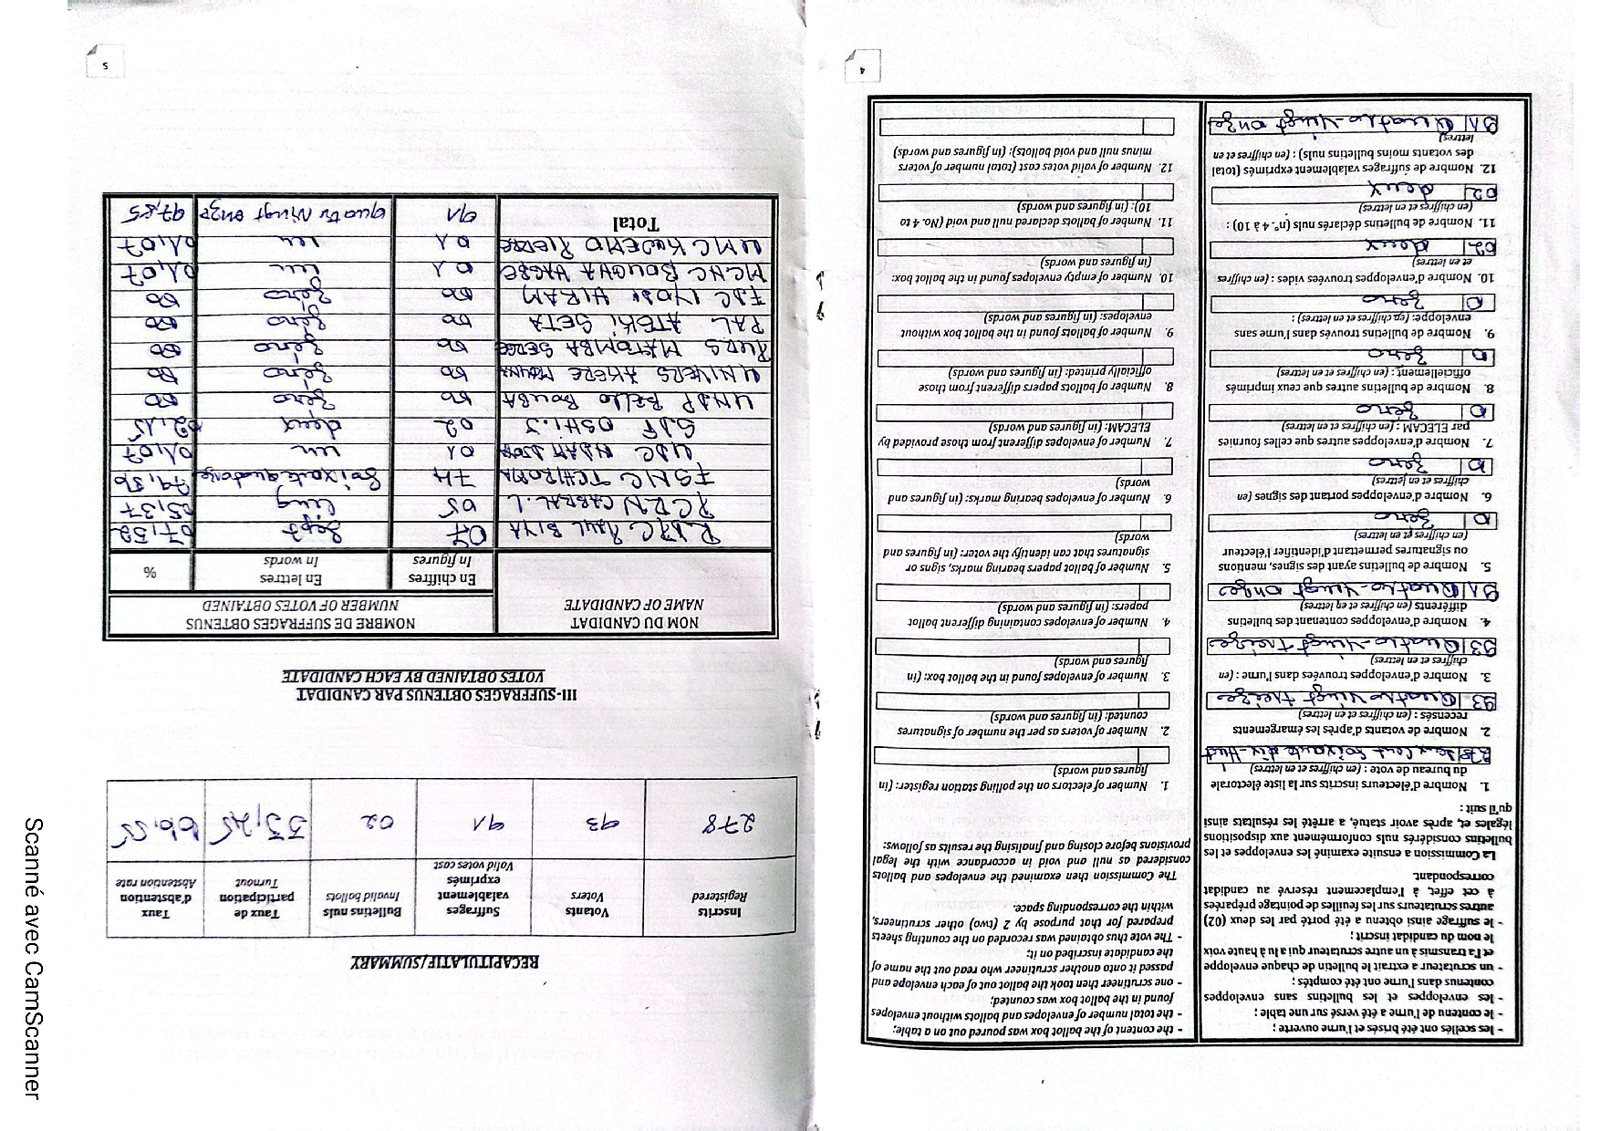 - les scellés ont été brisés et l'urne ouverte ;
- le contenu de l'urne a été versé sur une table ;
- les enveloppes et les bulletins sans enveloppes
contenus dans l'urne ont été comptés ;
- un scrutateur a extrait le bulletin de chaque enveloppe
et l'a transmis à un autre scrutateur qui a lu à haute voix
le nom du candidat inscrit ;
- le suffrage ainsi obtenu a été porté par les deux (02)
autres scrutateurs sur les feuilles de pointage préparées
à cet effet, à l'emplacement réservé au candidat
correspondant.
La Commission a ensuite examiné les enveloppes et les
bulletins considérés nuls conformément aux dispositions
légales et, après avoir statué, a arrêté les résultats ainsi
qu'il suit :
1. Nombre d'électeurs inscrits sur la liste électorale
du bureau de vote : (en chiffres et en lettres)
278 deux cent soixante dix-Huit
2. Nombre de votants d'après les émargements
recensés : (en chiffres et en lettres)
93 Quatre-Vingt treize
3. Nombre d'enveloppes trouvées dans l'urne : (en
chiffres et en lettres)
93 Quatre-Vingt Treize
4. Nombre d'enveloppes contenant des bulletins
différents (en chiffres et en lettres)
91 Quatre-Vingt Onze
5. Nombre de bulletins ayant des signes, mentions
ou signatures permettant d'identifier l'électeur
(en chiffres et en lettres)
0 zéro
6. Nombre d'enveloppes portant des signes (en
chiffres et en lettres)
0 zéro
7. Nombre d'enveloppes autres que celles fournies
par ELECAM : (en chiffres et en lettres)
0 zéro
8. Nombre de bulletins autres que ceux imprimés
officiellement : (en chiffres et en lettres)
0 zéro
9. Nombre de bulletins trouvés dans l'urne sans
enveloppe: (en chiffres et en lettres) :
0 zéro
10. Nombre d'enveloppes trouvées vides : (en chiffres
et en lettres)
02 deux
11. Nombre de bulletins déclarés nuls (n°. 4 à 10) :
(en chiffres et en lettres)
02 deux
12. Nombre de suffrages valablement exprimés (total
des votants moins bulletins nuls) : (en chiffres et en
lettres)
91 Quatre-Vingt onze
- the content of the ballot box was poured out on a table;
- the total number of envelopes and ballots without envelopes
found in the ballot box was counted;
- one scrutineer then took the ballot out of each envelope and
passed it onto another scrutineer who read out the name of
the candidate inscribed on it;
- The vote thus obtained was recorded on the counting sheets
prepared for that purpose by 2 (two) other scrutineers,
within the corresponding space.
The Commission then examined the envelopes and ballots
considered as null and void in accordance with the legal
provisions before closing and finalising the results as follows:
1. Number of electors on the polling station register: (in
figures and words)
2. Number of voters as per the number of signatures
counted: (in figures and words)
3. Number of envelopes found in the ballot box: (in
figures and words)
4. Number of envelopes containing different ballot
papers: (in figures and words)
5. Number of ballot papers bearing marks, signs or
signatures that can identify the voter: (in figures and
words)
6. Number of envelopes bearing marks: (in figures and
words)
7. Number of envelopes different from those provided by
ELECAM: (in figures and words)
8. Number of ballots papers different from those
officially printed: (in figures and words)
9. Number of ballots found in the ballot box without
envelopes: (in figures and words)
10. Number of empty envelopes found in the ballot box:
(in figures and words)
11. Number of ballots declared null and void (No. 4 to
10): (in figures and words)
12. Number of valid votes cast (total number of voters
minus null and void ballots): (in figures and words)
4
RECAPITULATIF/SUMMARY
Inscrits Registered Votants Voters Suffrages valablement exprimés Valid votes cast Bulletins nuls Invalid ballots Taux de participation Turnout Taux d'abstention Abstention rate
278 93 91 02 33,45 66,55
III-SUFFRAGES OBTENUS PAR CANDIDAT
VOTES OBTAINED BY EACH CANDIDATE
NOM DU CANDIDAT NOMBRE DE SUFFRAGES OBTENUS
NAME OF CANDIDATE NUMBER OF VOTES OBTAINED
En chiffres En lettres %
In figures In words
RDPC PAUL BIYA 07 Sept 07,52
PCRN CABRAL.L 05 Cinq 05,37
FSNC TCHIROMA 74 Soixante quatorze 79,56
UDC NDAM 01 un 01,07
SDF OSHI.J 02 deux 02,15
UNDP BELLO BOUBA 00 zéro 00
UNIVERS AKERE MOUNA 00 zéro 00
PURS MATOMBA SERGE 00 zéro 00
PAL ATEKI SETA 00 zéro 00
FDC IYODI HIRAM 00 zéro 00
MCNC BOUGHA HAGBE 01 un 01,07
UMC KWEMO PIERRE 01 un 01,07
Total 91 quatre Vingt onze 97,85
5
Scanné avec CamScanner